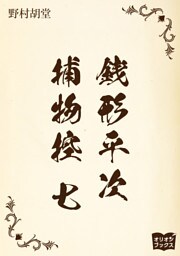 野村胡堂
銭形平次
捕物控 七
オリオン
ブックス